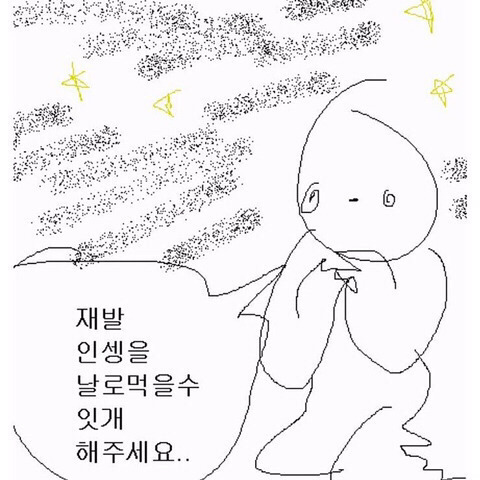 재발
인셍을
날로먹을수
잇개
해주세요..